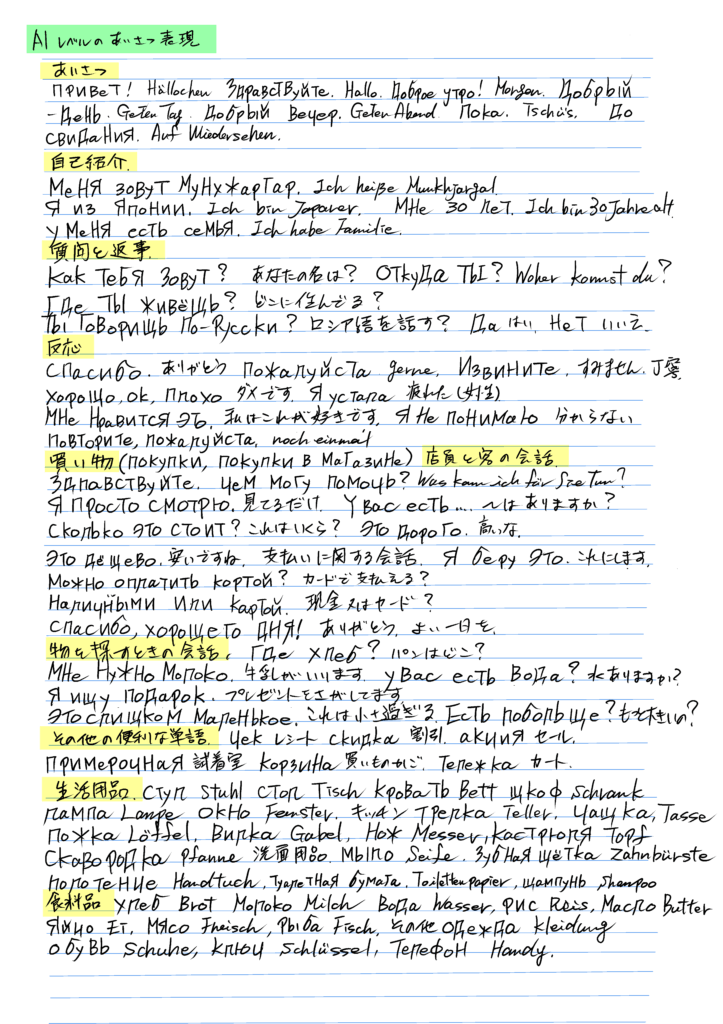 A1 レベルのあいさつ表現
あいさつ
Привет! Hallochen Здравствуйте. Hallo. Доброе утро! Morgen. Добрый
-День. Geten Tag. Добрый Вечер. Geten Abend Пока. Tschüs. До
свидания. Auf Wiedersehen.
自己紹介.
Меня зовут Мунхжаргар. Ich heiße Munkhjargal.
Я из Японии. Ich bin Japaner. Мне 30 лет. Ich bin 30 Jahre alt.
У меня есть семья. Ich habe Familie.
質問と返事.
Как тебя зовут? あなたの名は? Откуда ты? Woher kommst du?
Где ты живёшь? どこに住んでる?
Ты говоришь по-Русски? ロシア語を話す? Да はい, Нет いいえ.
反応
Спасибо. ありがとう пожалуйста gerne. Извините. すみません.丁寧
хорошо, ok, плохо ダメです. Я устала 疲れた (女性)
Мне нравится эть. 私はこれが好きです. Я не понимаю 分からない
повторите, пожалуйста, noch einmal
買い物 (покупки, покупки в магазине) 店員と客の会話.
Здравствуйте. Чем могу помочь? Was kann ich für Sie Tun?
Я просто смотрю. 見てるだけ. У Вас есть .... 〜はありますか?
Сколько это стоит? これはいくら? Это дорого. 高いな.
Это дёшево. 安いですね. 支払いに関する会話. Я беру это. これにします.
Можно оплатить кортой? カードで支払える?
Наличными или картой. 現金又はカード?
Спасибо, хорошего дня! ありがとう, よい一日を.
物を探すときの会話. Где хлеб? パンはどこ?
Мне нужно молоко. 牛乳がいります. У Вас есть вода? 水ありますか?
Я ищу подарок. プレゼントをさがしてます
Это слишком маленькое. これは小さ過ぎる. Есть побольше? もっと大きいの?
その他の便利な単語. Чек レシート скидка 割引. акция セール.
примерочная 試着室 корзина 買いものかご. Тележка カート.
生活用品. Стул Stuhl стол Tisch кровать Bett шкоф Schrank
лампа Lampe окно Fenster. キッチン Трелка Teller. Чашка, Tasse
ложка Löffel, Вилка Gabel, Нож Messer, кастрюля Topf
Сковородка Pfanne 洗面用品. мыло Seife. Зубная щётка Zahnbürste
полотенце Handtuch, Туалетная бумага. Toilettenpapier, шампунь Shampoo
食料品 хлеб Brot молоко Milch вода Wasser, рис Reis, масло Butter
Яйцо Ei, мясо Fleisch, рыба Fisch, その他 одежда kleidung
обувь Schuhe, ключ Schlüssel, Телефон Handy.